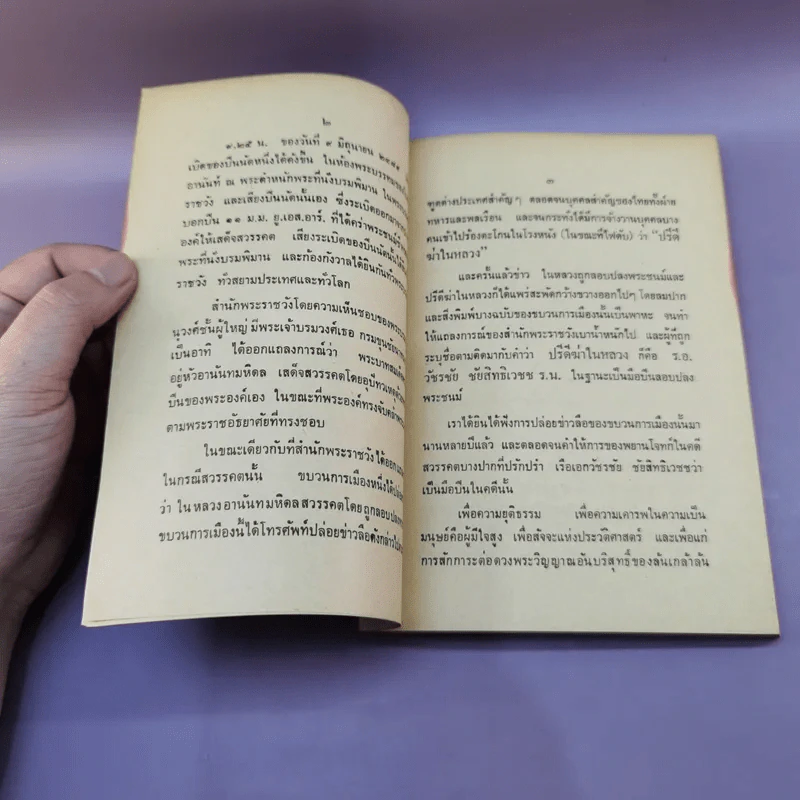 ๒
๙.๒๕ น. ของวันที่ ๙ มิถุนายน ๒๔๘๙
เบิดของปืนนัดหนึ่งได้ดังขึ้น ในห้องพระบรรทม
อานันท์ ณ พระตำหนักพระที่นั่งบรมพิมาน
ราชวัง และเสียงปืนนัดนั้นเอง ซึ่งระเบิดออกมาจาก
บอกปืน ๑๑ ม.ม. ยู.เอส.อาร์. ที่ได้คร่าพระชนม์
องค์ให้เสด็จสวรรคต เสียงระเบิดของปืนนัดนั้นได้
พระที่นั่งบรมพิมาน และก้องกังวาลได้ยินกันทั่ว
ราชวัง ทั่วสยามประเทศและทั่วโลก
สำนักพระราชวังโดยความเห็นชอบของ
นุวงศ์ชั้นผู้ใหญ่ มีพระเจ้าบรมวงศ์เธอ กรมขุน
เป็นอาทิ ได้ออกแถลงการณ์ว่า พระบาท
อยู่หัวอานันทมหิดล เสด็จสวรรคตโดยอุปัทวเหตุ
ปืนของพระองค์เอง ในขณะที่พระองค์ทรงจับ
ตามพระราชอัธยาศัยที่ทรงชอบ
ในขณะเดียวกับที่สำนักพระราชวังได้ออก
ในกรณีสวรรคตนั้น ขบวนการเมืองหนึ่งได้
ว่า ในหลวงอานันทมหิดลสวรรคตโดยถูกลอบปลง
ขบวนการเมืองนี้ได้โทรศัพท์ปล่อยข่าวลือดังกล่าวไป
๓
ฑูตต่างประเทศสำคัญๆ ตลอดจนบุคคลสำคัญของไทยทั้งฝ่าย
ทหารและพลเรือน และจนกระทั่งได้มีการจ้างวานบุคคลบาง
คนเข้าไปร้องตะโกนในโรงหนัง (ในขณะที่ไฟดับ) ว่า “ปรีดี
ฆ่าในหลวง”
และครั้นแล้วข่าว ในหลวงถูกลอบปลงพระชนม์และ
ปรีดีฆ่าในหลวงก็ได้แพร่สะพัดกว้างขวางออกไปๆ โดยลมปาก
และสิ่งพิมพ์บางฉบับของขบวนการเมืองนั้นเป็นพาหะ จนทำ
ให้แถลงการณ์ของสำนักพระราชวังเบาน้ำหนักไป และผู้ที่ถูก
ระบุชื่อตามติดมากับคำว่า ปรีดีฆ่าในหลวง ก็คือ ร.อ.
วัชรชัย ชัยสิทธิเวชช ร.น. ในฐานะเป็นมือปืนลอบปลง
พระชนม์
เราได้ยินได้ฟังการปล่อยข่าวลือของขบวนการเมืองนั้นมา
นานหลายปีแล้ว และตลอดจนคำให้การของพยานโจทก์ในคดี
สวรรคตบางปากที่ปรักปรำ เรือเอกวัชรชัย ชัยสิทธิเวชชว่า
เป็นมือปืนในคดีนั้น
เพื่อความยุติธรรม เพื่อความเคารพในความเป็น
มนุษย์คือผู้มีใจสูง เพื่อสัจจะแห่งประวัติศาสตร์ และเพื่อแก่
การสักการะต่อดวงพระวิญญาณอันบริสุทธิ์ของล้นเกล้าล้น